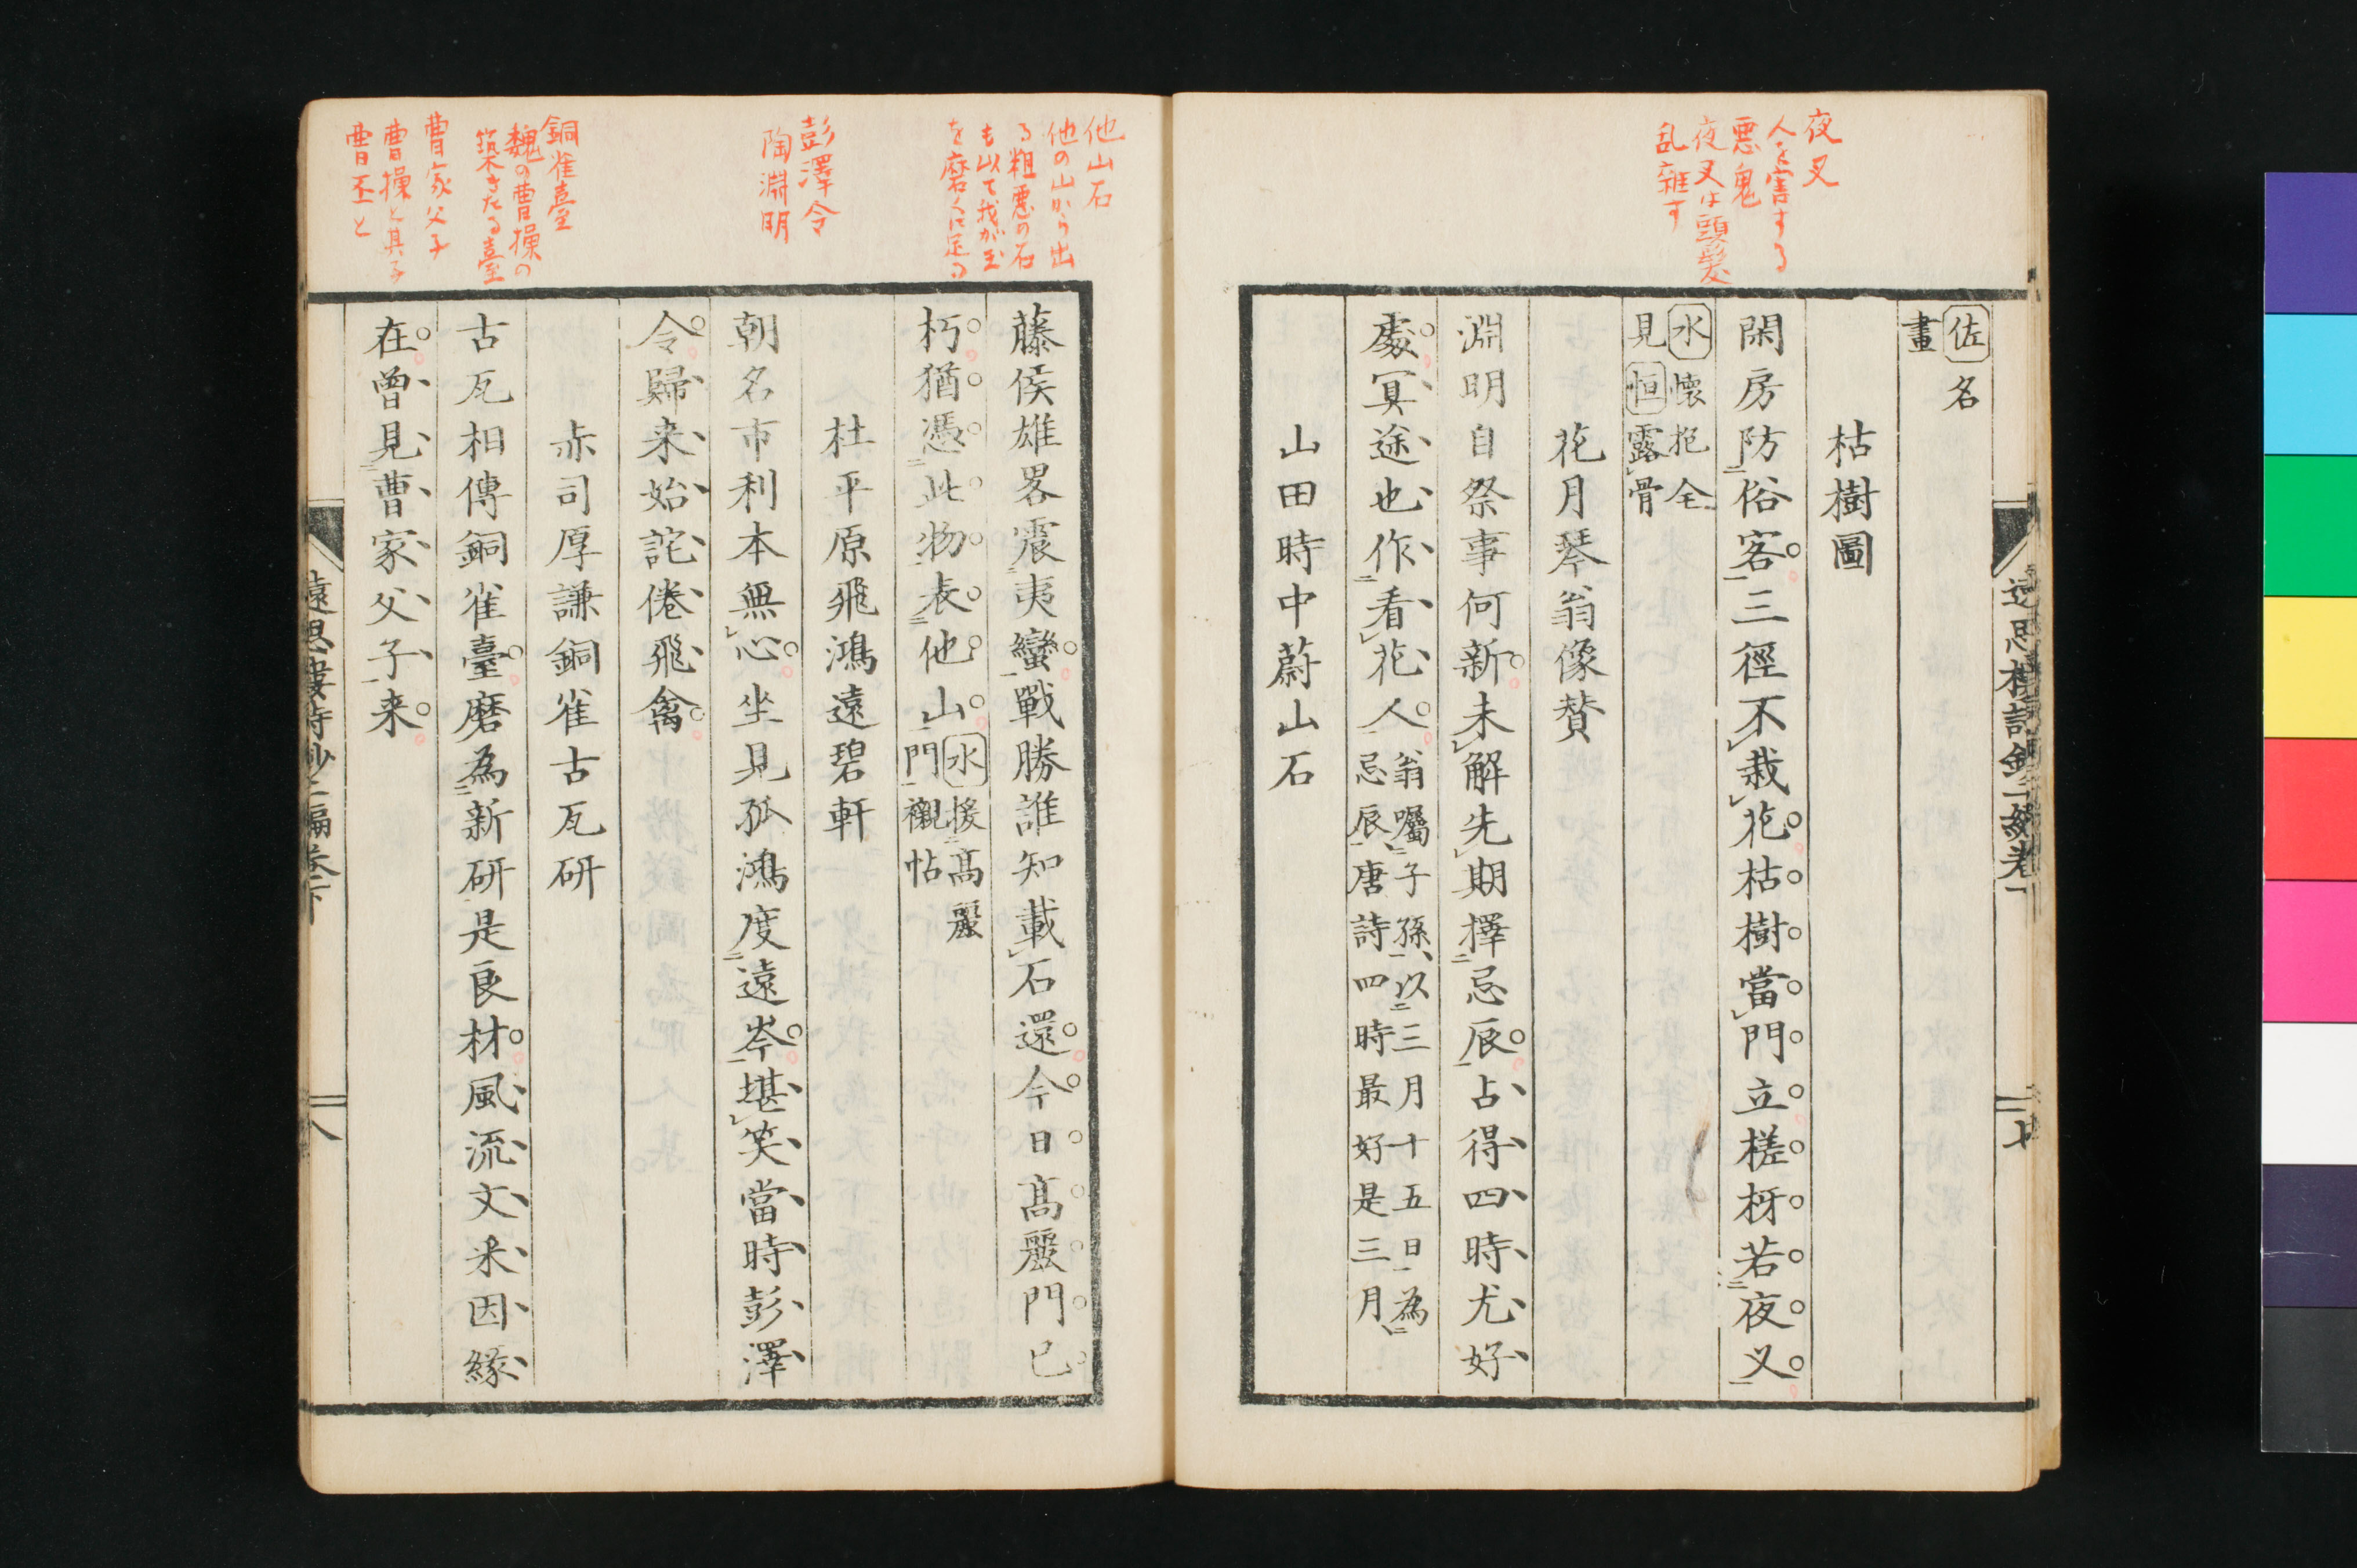 夜叉
人を害する
悪鬼
夜叉は頭髪
乱雑す
佐名
畫
枯樹圖
閑房防俗客三徑不栽花枯樹當門立槎枒若夜叉
水懐抱全
見恒露骨
花月琴翁像賛
淵明自祭事何新未解先期擇忌辰占得四時尤好
處冥途也作看花人
翁囑子孫以三月十五日為
忌辰唐詩四時最好是三月
山田時中蔚山石
他山石
他の山から出
る粗悪の石
も以て我が玉
を磨くに足る
彭澤令
陶淵明
銅雀臺
魏の曹操の
築きたる臺
曹家父子
曹操と其子
曹丕と
藤侯雄畧震夷蠻戰勝誰知載石還今日髙麗門已
朽猶憑此物表他山
水援髙麗
門襯帖
杜平原飛鴻遠碧軒
朝名市利本無心坐見孤鴻度遠岑堪笑當時彭澤
令歸来始詑倦飛禽
赤司厚謙銅雀古瓦研
古瓦相傳銅雀臺磨為新研是良材風流文采因緣
在曾見曹家父子来
遠思樓詩鈔二編卷下
八